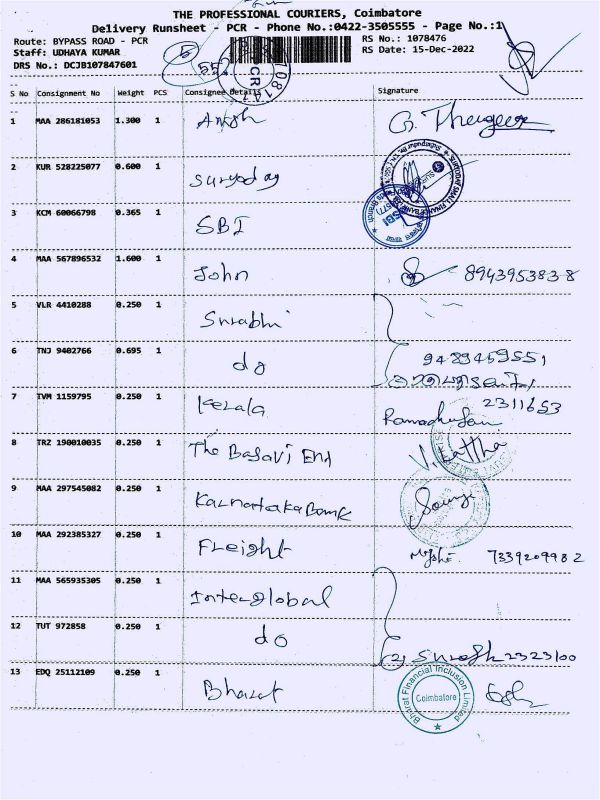 THE PROFESSIONAL COURIERS, Coimbatore
Delivery Runsheet - PCR - Phone No.:0422-3505555 - Page No.:1
Route: BYPASS ROAD - PCR
RS No.: 1078476
Staff: UDHAYA KUMAR
RS Date: 15-Dec-2022
DRS No.: DCJB107847601
55
PCR
S No Consignment No Weight PCS Consignee Details Signature
1 MAA 286181053 1.300 1 Ansh
2 KUR 528225077 0.600 1 Suryoday
3 KCM 60066798 0.365 1 SBI
SBI
4 MAA 567896532 1.600 1 John 8943953838
5 VLR 4410288 0.250 1 Surabhi
6 TNJ 9402766 0.695 1 do 9489459551
7 TVM 1159795 0.250 1 Kerala 2311653
8 TRZ 190010035 0.250 1 The Basavi End
9 MAA 297545082 0.250 1 Karnataka Bank
10 MAA 292385327 0.250 1 Freight 7339209982
11 MAA 565935305 0.250 1 Interglobal
12 TUT 972858 0.250 1 do (2) Suresh 2323100
13 EDQ 25112109 0.250 1 Bharat
Bharat Financial Inclusion Limited
Coimbatore